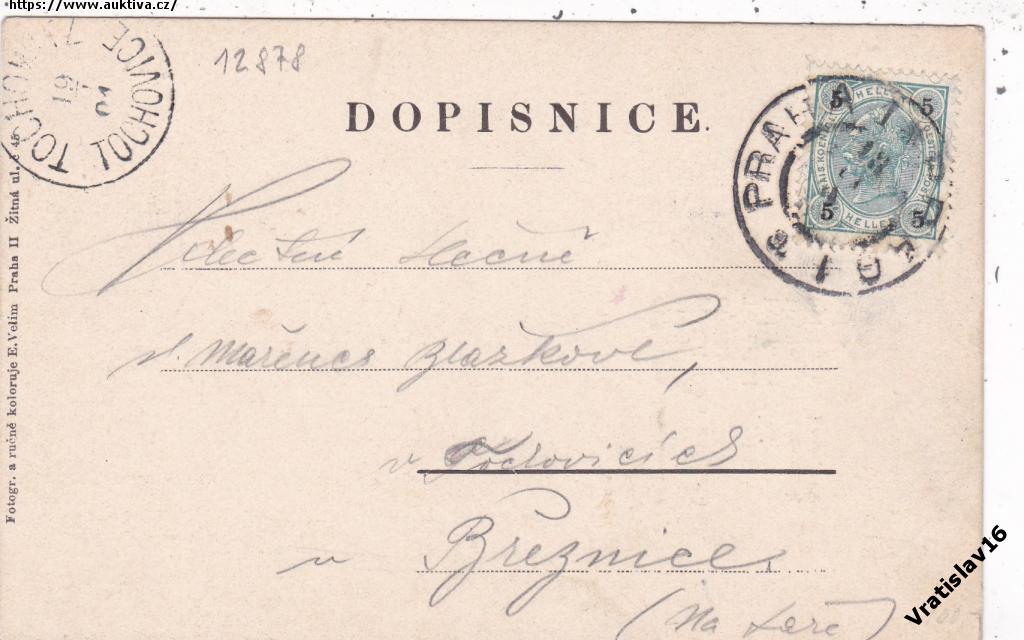 https://www.auktiva.cz/
12878
TOCHOVICE TOCHOWICE
19
01
DOPISNICE.
PRAHA
5 HELLER 5
5 HELLER 5
Velectěné slečně
sl. Mařence Blažkové,
v Tochovicích
u Březnice
(Na
Fotogr. a ručně koloruje E. Velím Praha II Žitná ul. č 45
Vratislav16